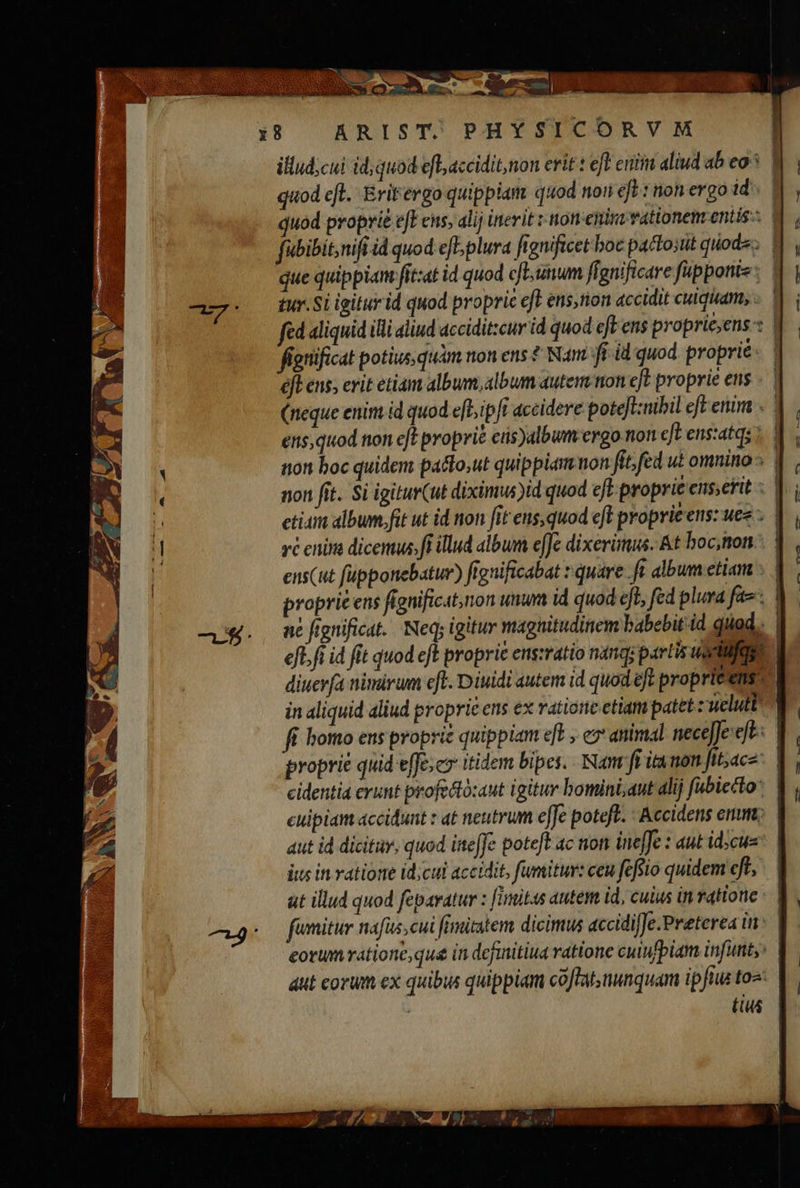 18 ARIST. PHYSICORVM
illud,cui id,quod eſt,accidit,non erit : eſt enim aliud ab eo
quod eſt. Erit ergo quippiam quod non eſt : non ergo id
quod proprie eſt ens, alij inerit : non enim rationem entis
ſubibit,niſi id quod eſt,plura ſignificet hoc pacto,ut quod=
que quippiam ſit:at id quod eſt,unum ſignificare ſupponi=
27. tur.Si igitur id quod proprie eſt ens,non accidit cuiquam,
ſed aliquid illi aliud accidit:cur id quod eſt ens proprie,ens
ſignificat potius,quàm non ens? Nam ſi id quod proprie
eſt ens, erit etiam album,album autem non eſt proprie ens
(neque enim id quod eſt,ipſi accidere poteſt:nihil eſt enim
ens,quod non eſt propriè ens)album ergo non eſt ens:atq;
non hoc quidem pacto,ut quippiam non ſit,ſed ut omnino
non ſit. Si igitur(ut diximus)id quod eſt proprie ens,erit
etiam album,fit ut id non ſit ens,quod eſt proprie ens: ue=
rè enim dicemus,ſi illud album eſſe dixerimus. At hoc,non
ens(ut ſupponebatur) ſignificabat : quare ſi album etiam
proprie ens ſignificat,non unum id quod eſt, ſed plura ſa=
28. nè ſignificat. Neq; igitur magnitudinem habebit id quod
eſt,ſi id ſit quod eſt proprie ens:ratio nanq; partis utriuſq;
diuerſa nimirum eſt. Diuidi autem id quod eſt proprie ens
in aliquid aliud proprie ens ex ratione etiam patet : ueluti
ſi homo ens proprie quippiam eſt , & animal neceſſe eſt
proprie quid eſſe,& itidem bipes. Nam ſi ita non ſit,ac=
cidentia erunt profectò:aut igitur homini,aut alij ſubiecto
cuipiam accidunt : at neutrum eſſe poteſt. Accidens enim
aut id dicitur, quod ineſſe poteſt ac non ineſſe : aut id,cu=
ius in ratione id,cui accidit, ſumitur: ceu ſeſſio quidem eſt,
ut illud quod ſeparatur : ſimitas autem id, cuius in ratione
29. ſumitur naſus,cui ſimitatem dicimus accidiſſe.Preterea in
eorum ratione,quæ in definitiua ratione cuiuſpiam inſunt,
aut eorum ex quibus quippiam cõſtat,nunquam ipſius to=
tius